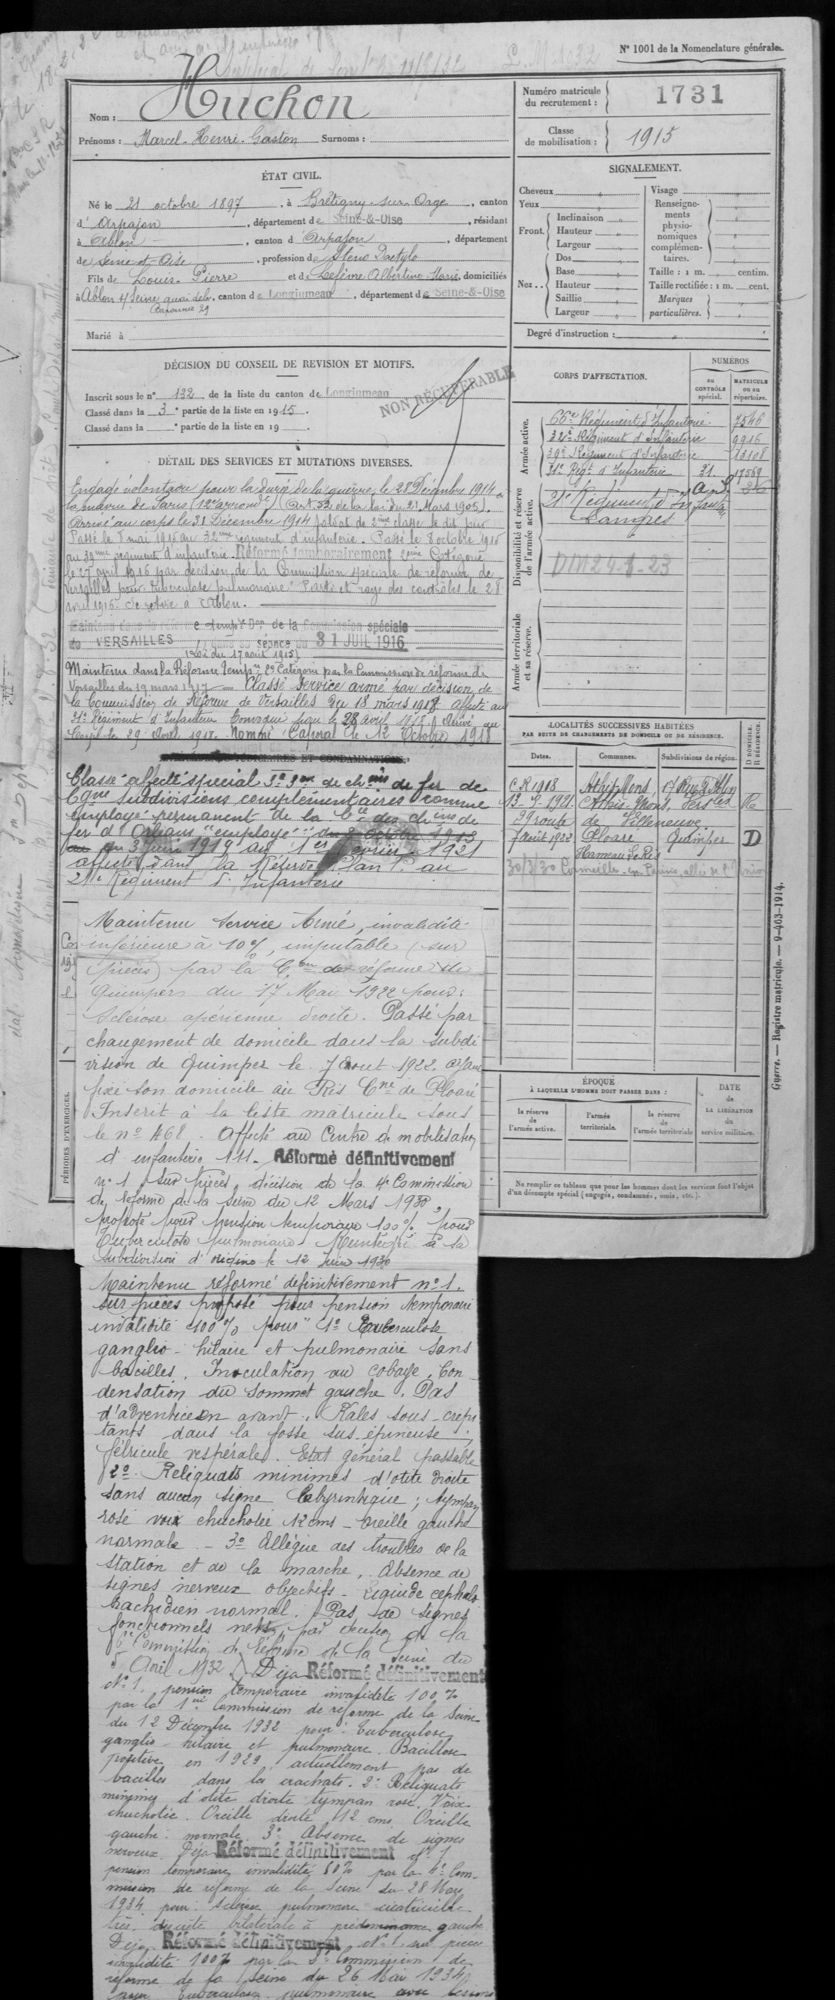 N° 1001 de la Nomenclature générale.
Nom : Huchon
Prénoms : Marcel-Henri-Gaston Surnoms :
Numéro matricule du recrutement : 1731
Classe de mobilisation : 1915
ÉTAT CIVIL.
Né le 21 octobre 1897, à Brétigny-sur-Orge, canton
d'Arpajon, département de Seine-&-Oise, résidant
à Ablon, canton d'Arpajon, département
de Seine et Oise, profession de Sténo Dactylo
Fils de Louis-Pierre et de Lefèvre Albertine Marie domiciliés
à Ablon s/ Seine quai de la Baronnie 29, canton de Longjumeau, département de Seine-&-Oise
Marié à
SIGNALEMENT.
Cheveux
Yeux
Front. Inclinaison
Hauteur
Largeur
Nez. Dos
Base
Hauteur
Saillie
Largeur
Visage
Renseignements physionomiques complémentaires.
Taille : 1 m. centim.
Taille rectifiée : 1 m. cent.
Marques particulières.
Degré d'instruction :
DÉCISION DU CONSEIL DE REVISION ET MOTIFS.
Inscrit sous le n° 132 de la liste du canton de Longjumeau
Classé dans la 3e partie de la liste en 1915.
Classé dans la e partie de la liste en 19
NON RÉCUPÉRABLE
CORPS D'AFFECTATION.
NUMÉROS
au CONTRÔLE spécial.
MATRICULE ou au répertoire.
Armée active.
66e Régiment d'Infanterie 7546
32e Régiment d'Infanterie 9916
39e Régiment d'Infanterie 13108
31e Regt d'Infanterie 31.
Disponibilité et réserve de l'armée active.
21e Régiment d'Infanterie
Langres
Armée territoriale et sa réserve.
DÉTAIL DES SERVICES ET MUTATIONS DIVERSES.
Engagé volontaire pour la durée de la guerre, le 28 Décembre 1914 à
la mairie de Paris (12e arrond.t) (art. 52 de la loi du 21 Mars 1905).
Arrivé au corps le 31 Décembre 1914 soldat de 2ème classe le dit jour
Passé le 8 mai 1915 au 32ème régiment d'infanterie. Passé le 8 octobre 1915
au 39me régiment d'infanterie. Réformé temporairement 2ème Catégorie
le 27 avril 1916 par décision de la Commission spéciale de réforme de
Versailles pour tuberculose pulmonaire. Passé et rayé des contrôles le 28
avril 1916. Se retire à Ablon.
Maintenu dans la réforme temp.re Don de la Commission spéciale
de VERSAILLES dans sa séance du 31 JUIL 1916
(Loi du 17 août 1915)
Maintenu dans la Réforme Temp.re 2e Catégorie par la Commission de réforme de
Versailles du 19 mars 1917 - Classé Service armé par décision de
la Commission de Réforme de Versailles du 18 mars 1918 affecté au
31e Régiment d'Infanterie Convoqué pour le 28 avril 1918. Arrivé au
Corps le 29 Avril 1918. Nommé Caporal le 12 Octobre 1918
Classé affecté spécial 5e Son de ch.ins de fer de
Cgne Subdivisions complémentaires comme
employé permanent de la Cie des ch.ins de
fer d'Orléans "employé"
du 3 juin 1919 au 1er Février 1921
affecté dans la Réserve Plan P. au
21e Régiment d'Infanterie
LOCALITÉS SUCCESSIVES HABITÉES
PAR SUITE DE CHANGEMENTS DE DOMICILE OU DE RÉSIDENCE.
Dates. Communes. Subdivisions de région.
D. DOMICILE. R. RÉSIDENCE.
C.R 1918 Athis Mons,
1921 Athis Mons, Vers.les R
29 route de Villeneuve
7 août 1922 Ploaré Quimper D
Hameau Le Ris
30/3/30 Cormeilles-en-Parisis,
PÉRIODES D'EXERCICES.
ÉPOQUE
À LAQUELLE L'HOMME DOIT PASSER DANS :
la réserve de l'armée active.
l'armée territoriale.
la réserve de l'armée territoriale
DATE de LA LIBÉRATION du service militaire.
Ne remplir ce tableau que pour les hommes dont les services font l'objet
d'un décompte spécial (engagés, condamnés, omis, etc.).
Guerre. — Registre matricule. — 9-463-1914.
Maintenu Service Armé, invalidité
inférieure à 10%, imputable (sur
pièces) par la Con de réforme de
Quimper du 17 Mai 1922 pour :
Sclérose apexienne droite. Passé par
changement de domicile dans la subdi
vision de Quimper le 7 aout 1922 ayant
fixé son domicile au Ris Cne de Ploaré
Inscrit à la liste matricule sous
le n° 468. Affecté au Centre de mobilisation
d'infanterie 111. Réformé définitivement
n° 1 sur pièces, décision de la 4e Commission
de réforme de la Seine du 12 Mars 1930,
proposé pour pension temporaire 100% pour
Tuberculose pulmonaire. Réintégré à la
subdivision d'origine le 12 Juin 1930
Maintenu réformé définitivement n° 1.
sur pièces proposé pour pension temporaire
invalidité 100% pour "1° Tuberculose
ganglio-hilaire et pulmonaire sans
bacilles. Inoculation au cobaye. Con
densation du sommet gauche. Pas
d'adventice en avant. Râles sous-crépi
tants dans la fosse sus épineuse ;
fébricule vespérale. Etat général passable
2° Reliquats minimes d'otite droite
sans aucun signe labyrintique ; tympan
rosé voix chuchotée 12 cms - oreille gauche
normale. - 3° Allègue des troubles de la
station et de la marche. Absence de
signes nerveux objectifs. Liquide céphalo
rachidien normal. Pas de signes
fonctionnels nets, par décision de la
6e Commission de Réforme de la Seine du
5 Avril 1932. Déjà Réformé définitivement
N° 1, pension temporaire invalidité 100%
par la 1re Commission de réforme de la Seine
du 12 Décembre 1932 pour : Tuberculose
ganglio-hilaire et pulmonaire. Bacillose
positive en 1929 actuellement pas de
bacilles dans les crachats. 2° Reliquats
minimes d'otite droite tympan rosé. Voix
chuchotée. Oreille droite 12 cms. Oreille
gauche normale 3° Absence de signes
nerveux. Déjà Réformé définitivement n° 1
pension temporaire invalidité 80% par la 4e Com-
mission de réforme de la Seine du 28 Mars
1934 pour : sclérose pulmonaire cicatricielle
très discrète bilatérale à prédominance gauche
Déjà Réformé définitivement N° 1 sur pièces
invalidité 100% par la 3e Commission de
réforme de la Seine du 26 Mai 1934
pour Tuberculose pulmonaire avec lésions